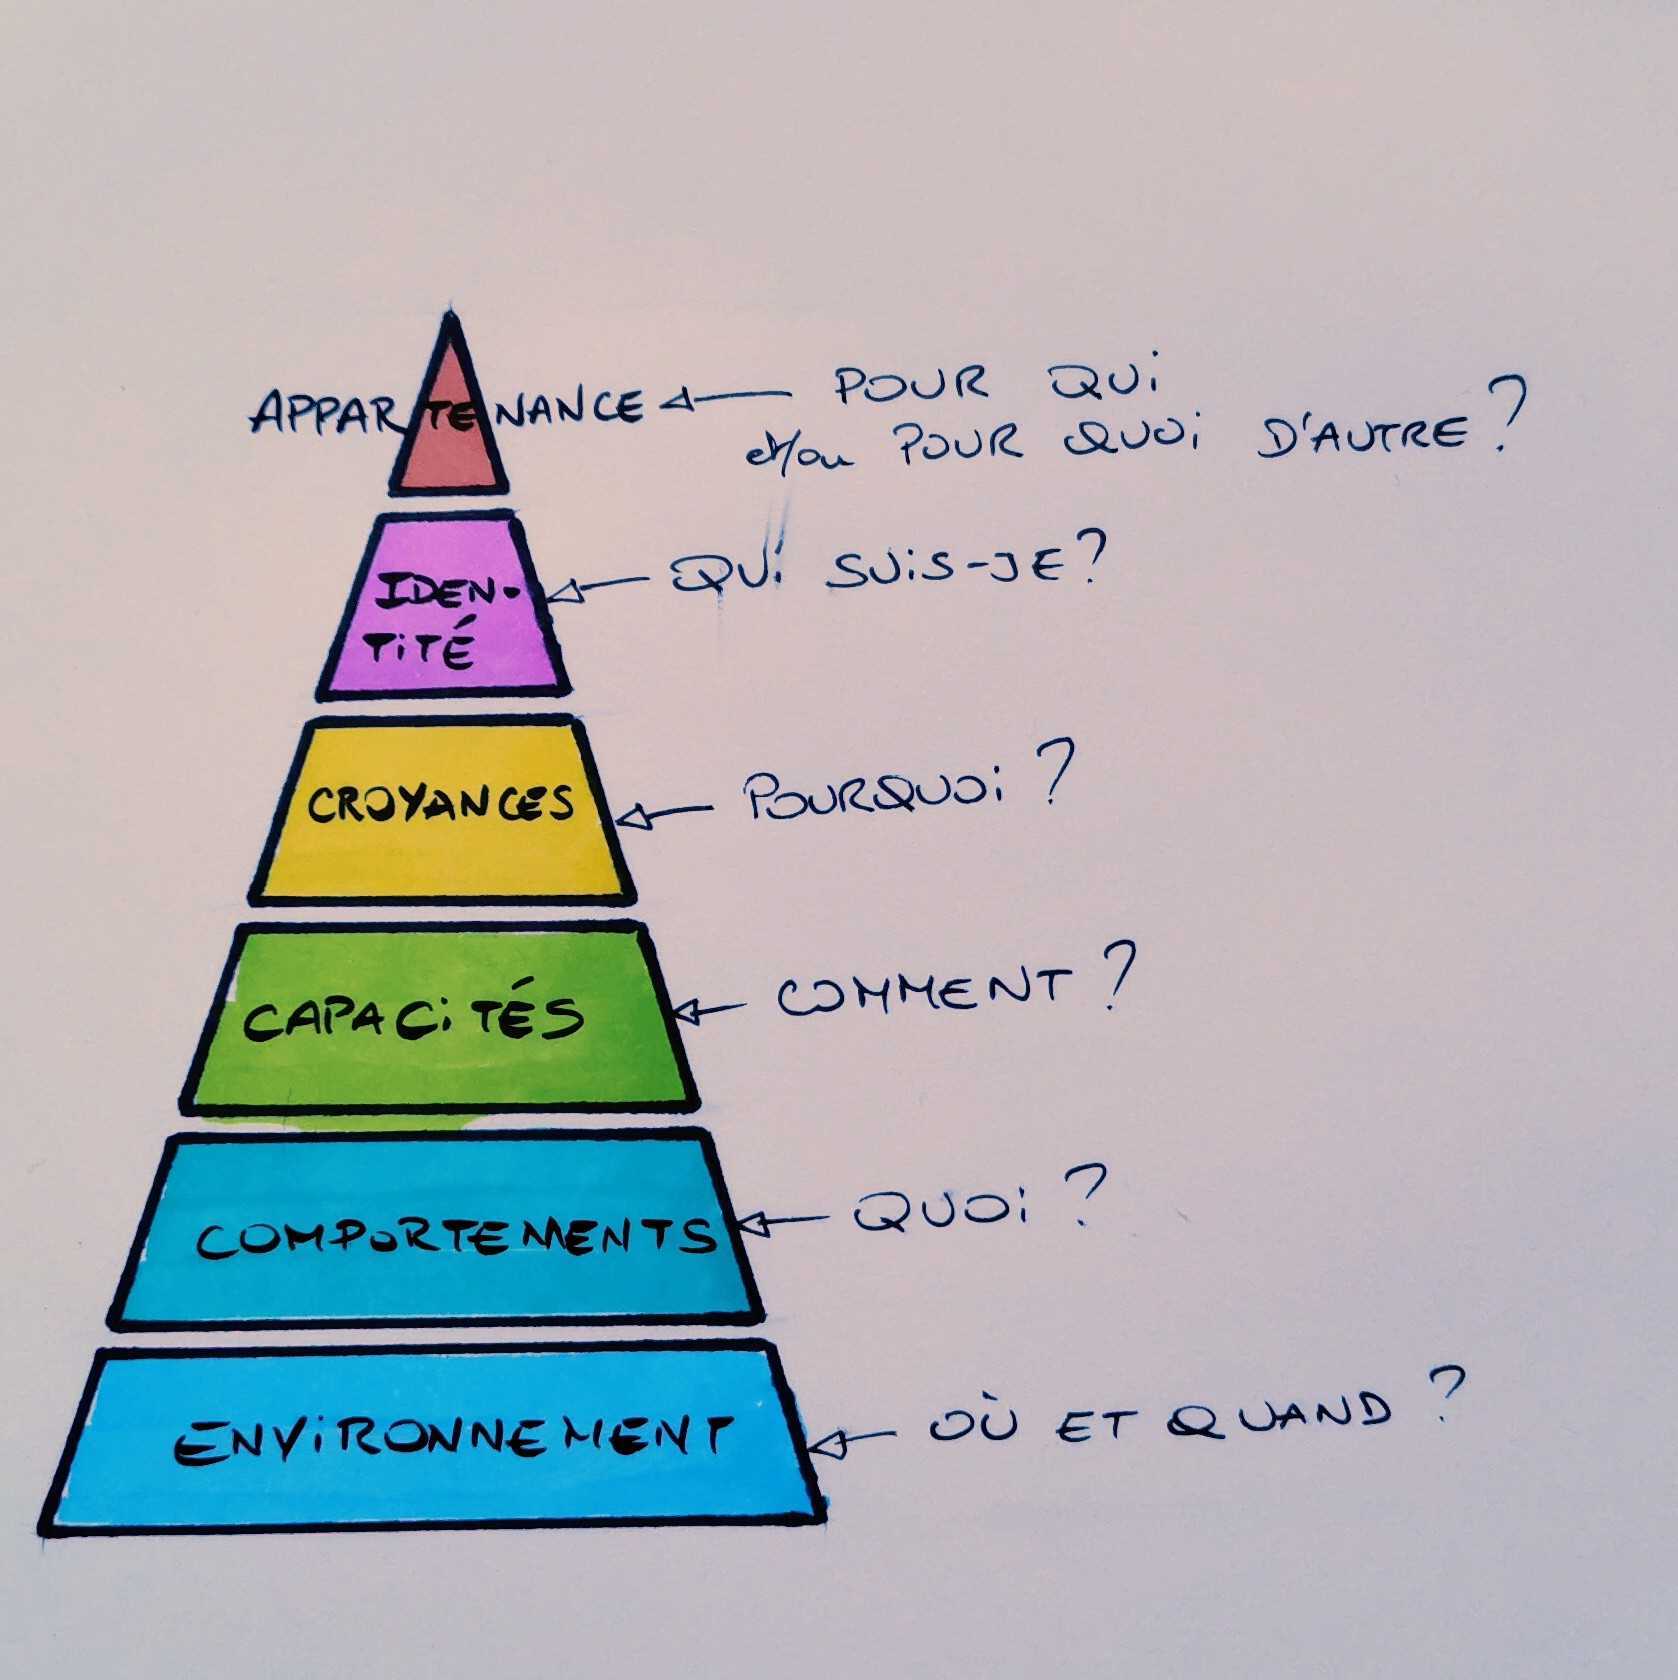 APPARTENANCE
POUR QUi
et/ou POUR QUOi D'AUTRE ?
IDEN-
TiTÉ
QUi SUiS-JE ?
CROYANCES
POURQUOi ?
CAPACiTÉS
COMMENT ?
COMPORTEMENTS
QUOi ?
ENViRONNEMENT
OÙ ET QUAND ?